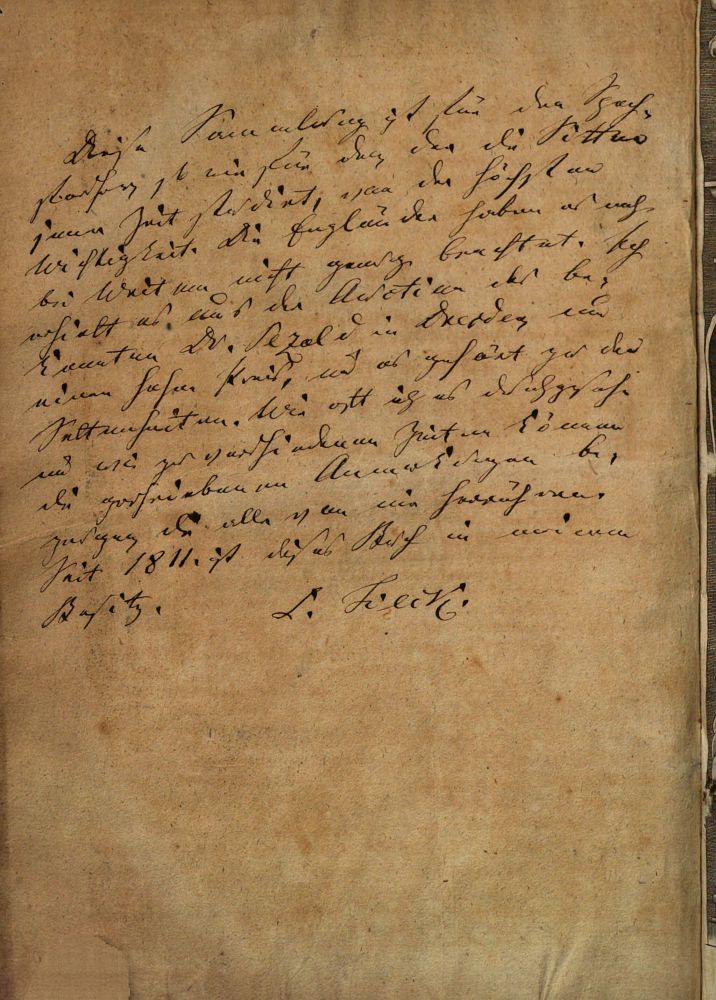 Diese Sammlung ist für den Sprach-
forscher, so wie für den der die Sitten
jener Zeit studirt, von der höchsten
Wichtigkeit. Die Engländer haben es noch
bei Weitem nicht genug beachtet. Ich
erhielt es aus der Auction des be-
kannten Dr. Pezold in Dresden um
einen hohen Preis, und es gehört zu den
Seltenheiten. Wie oft ich es durchgesehn
und wie zu verschiedenen Zeiten können
die geschriebenen Anmerkungen be-
zeugen die alle von mir herrühren.
Seit 1811. ist dieses Buch in meinem
Besitz. L. Tieck.